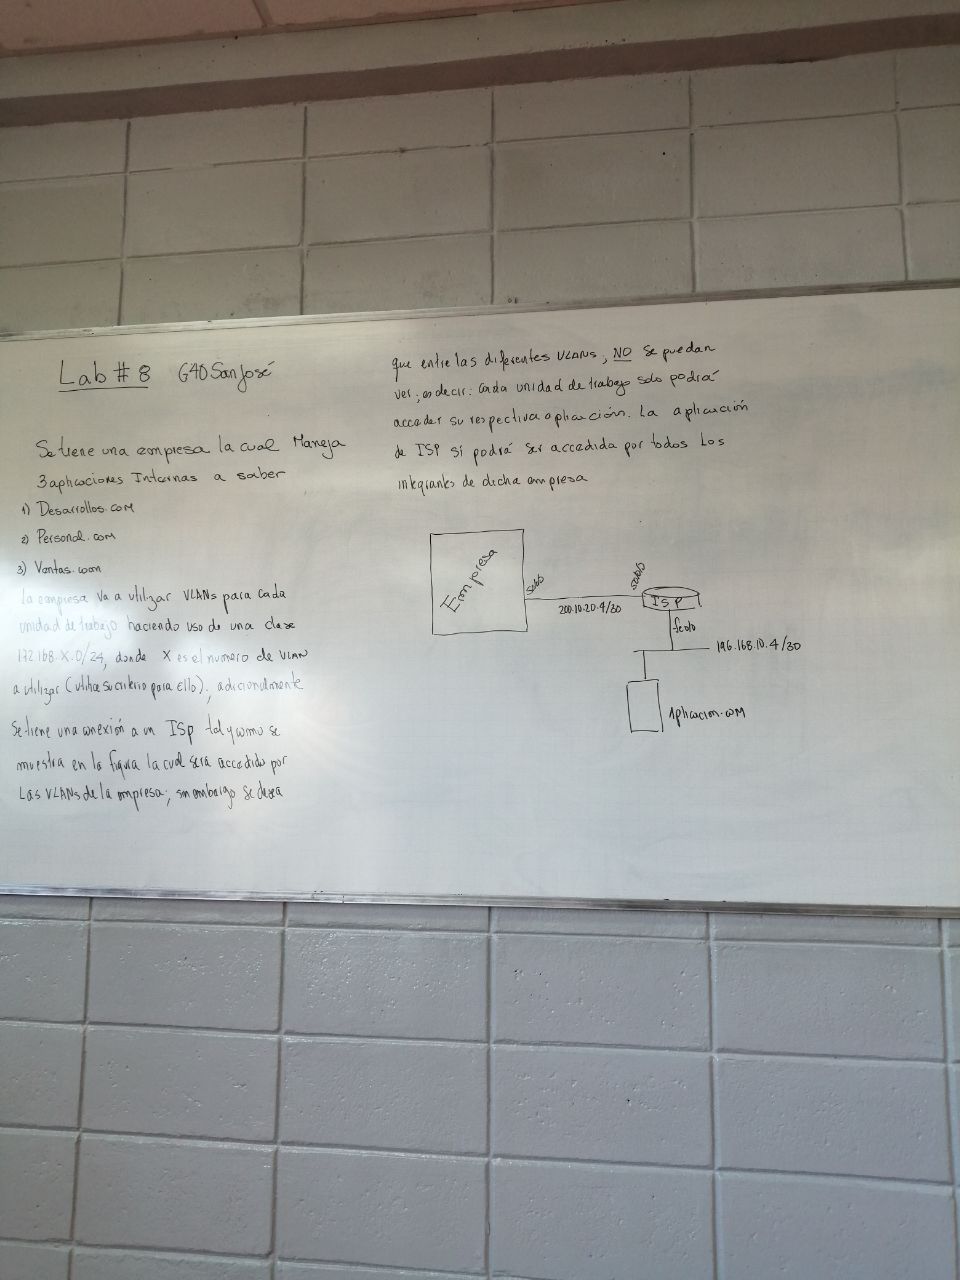 Lab # 8 G40 San José
Se tiene una empresa la cual Maneja
3 aplicaciones Internas a saber
1) Desarrollos.com
2) Personal.com
3) Ventas.com
La empresa va a utilizar VLANs para cada
unidad de trabajo haciendo uso de una clase
192.168.X.0/24, donde X es el numero de VLAN
a utilizar (utilice su criterio para ello); adicionalmente
Se tiene una conexión a un ISP tal y como se
muestra en la figura la cual será accedido por
Las VLANs de la empresa; sin embargo se desea
que entre las diferentes VLANs, NO se puedan
ver, es decir: cada unidad de trabajo solo podrá
acceder su respectiva aplicación. La aplicación
de ISP sí podrá ser accedida por todos los
integrantes de dicha empresa
Empresa
200.10.20.4/30
ISP
fe0/0
196.168.10.4/30
Aplicacion.com